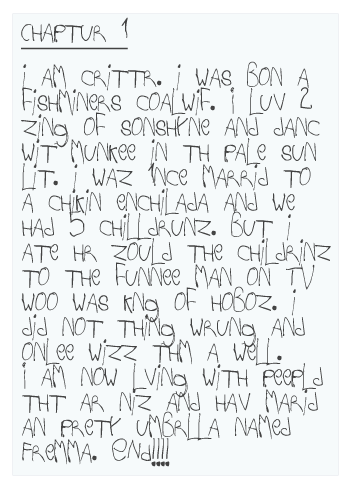 CHAPTUR 1
i AM CRiTTR. i WAS BON A
FiSHMiNERS COALWiF. i LUV 2
ZiNg OF SONSHYNE AND dANC
WiT MUNKEE iN TH PALE SUN
LiT. i WAZ 1NCE MARRid TO
A CHiKiN ENCHiLAdA ANd WE
HAd 5 CHiLLdRUNZ. BUT i
ATE HR ZOULd THE CHiLdRiNZ
TO THE FUNNEE MAN ON TV
WOO WAS KNg OF HOBOZ. i
did NOT THiNg WRUNg ANd
ONLEE WiZZ THM A WELL.
i AM NOW LViNg WiTH PEEPLd
THT AR NiZ ANd HAV MARid
AN PRETY UMBRLLA NAMEd
FREMMA. ENd!!!!